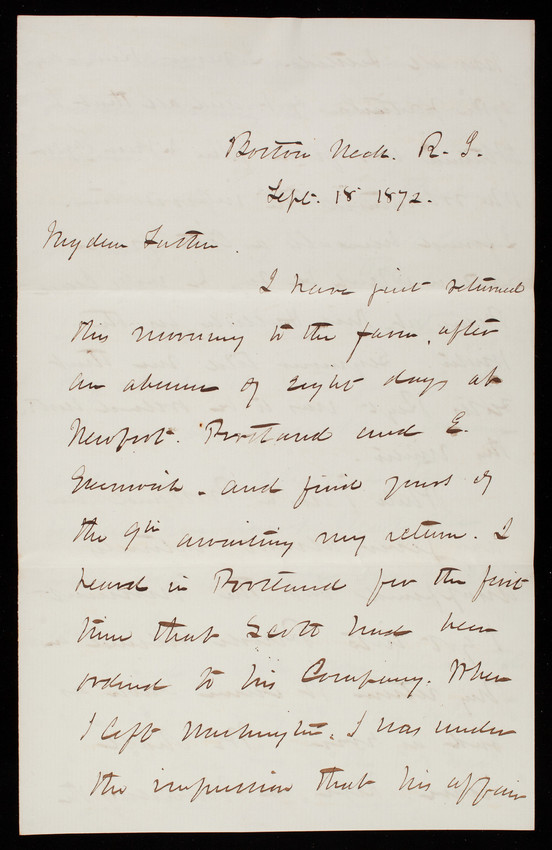 Boston Neck. R. I.
Sept. 18 1872.
My dear Father.
I have just returned
this morning to the farm, after
an absence of eight days at
Newport. Portland and E.
Greenwich - and find yours of
the 9th awaiting my return. I
heard in Portland for the first
time that Scott had been
ordered to his Company. When
I left Washington, I was under
the impression that his affair